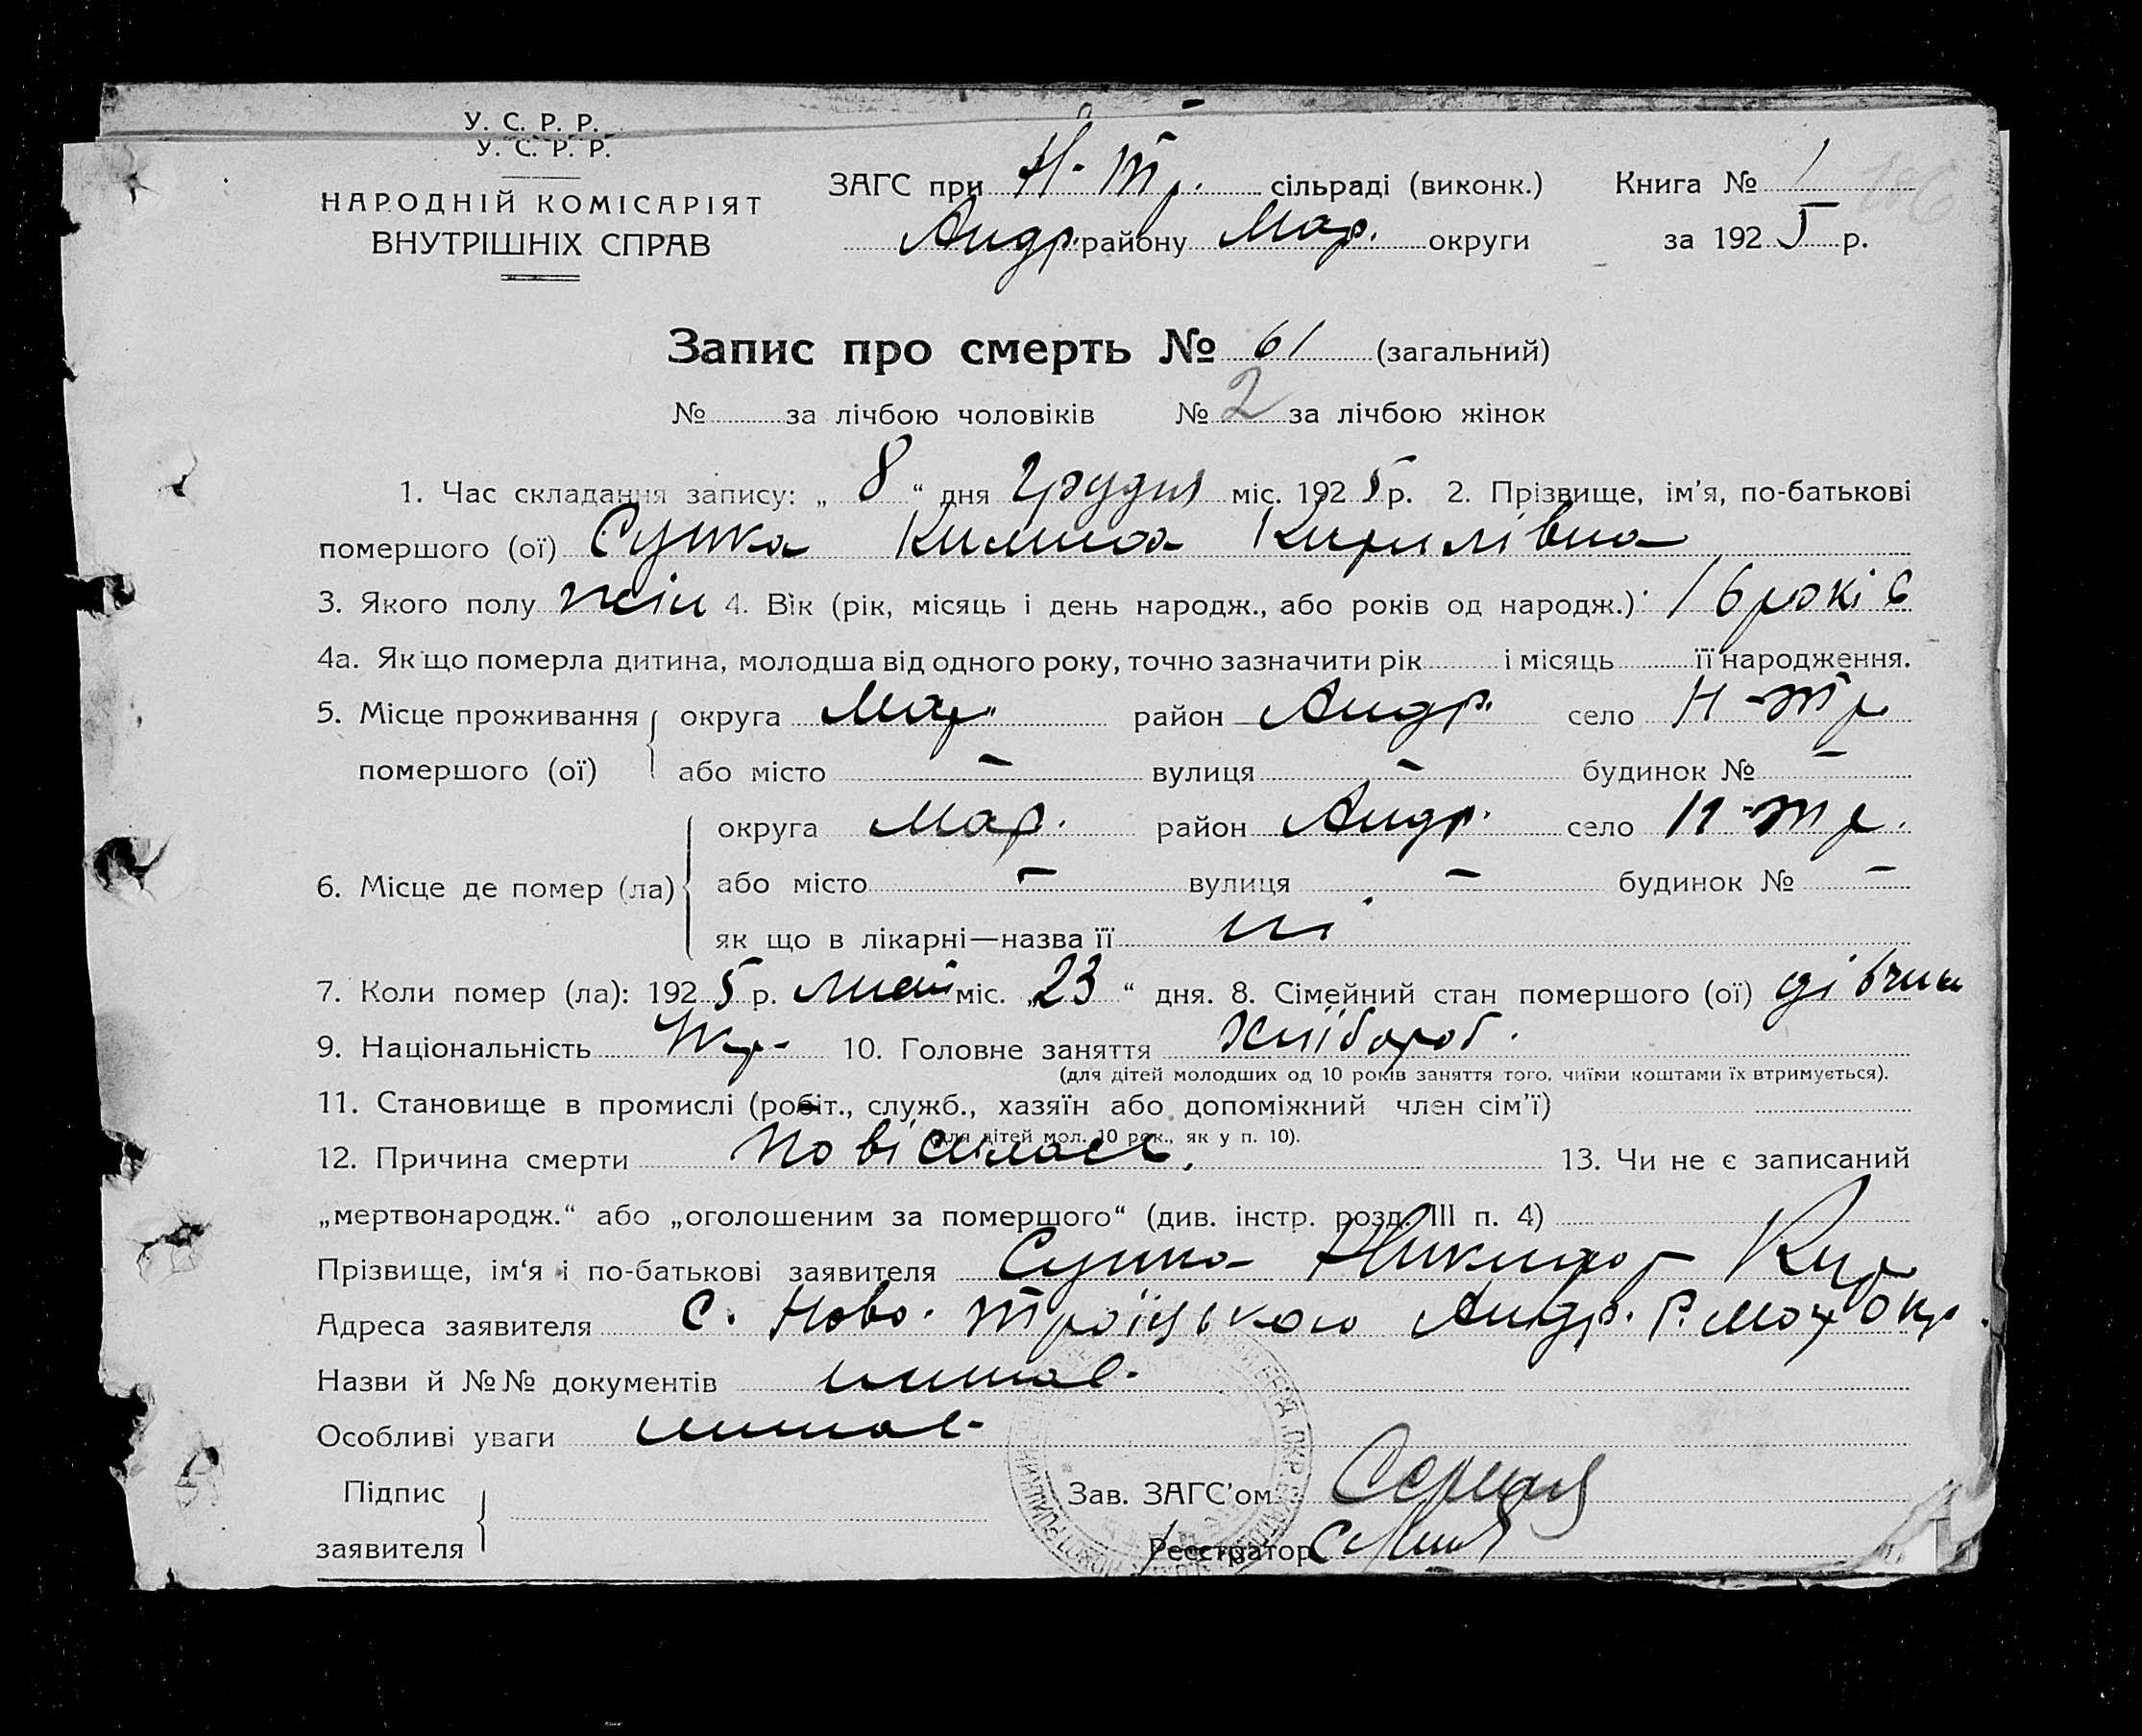 У. С. Р. Р.
У. С. Р. Р.
НАРОДНІЙ КОМІСАРІЯТ
ВНУТРІШНІХ СПРАВ
ЗАГС при Н-Тр. сільраді (виконк.) Книга № 1
Андр. району Мар. округи за 1925 р.
Запис про смерть № 61 (загальний)
№ за лічбою чоловіків № 2 за лічбою жінок
1. Час складання запису: „ 8 “ дня Грудня міс. 1925 р. 2. Прізвище, ім’я, по-батькові
помершого (ої) Сушка Килина Кирилівна
3. Якого полу жін 4. Вік (рік, місяць і день народж., або років од народж.): 16 років
4а. Як що померла дитина, молодша від одного року, точно зазначити рік і місяць її народження.
5. Місце проживання округа Мар. район Андр. село Н-Тр
помершого (ої) або місто — вулиця — будинок № —
округа Мар. район Андр. село Н-Тр.
6. Місце де помер (ла) або місто — вулиця — будинок № —
як що в лікарні—назва її ні
7. Коли помер (ла): 1925 р. Лист міс. „23 “ дня. 8. Сімейний стан помершого (ої) дівчин
9. Національність Укр. 10. Головне заняття Хлібороб.
(для дітей молодших од 10 років заняття того, чиїми коштами їх втримується).
11. Становище в промислі (робіт., служб., хазяїн або допоміжний член сім’ї)
(для дітей мол. 10 рок., як у п. 10).
12. Причина смерти Повісилась. 13. Чи не є записаний
„мертвонародж.“ або „оголошеним за помершого“ (див. інстр. розд. III п. 4)
Прізвище, ім‘я і по-батькові заявителя Сушка Никифор Кир
Адреса заявителя С. Ново-Троїцького Андр. Р. Мар окр.
Назви й №№ документів немає.
Особливі уваги немає.
Підпис
заявителя
Зав. ЗАГС’ом
Реєстратор